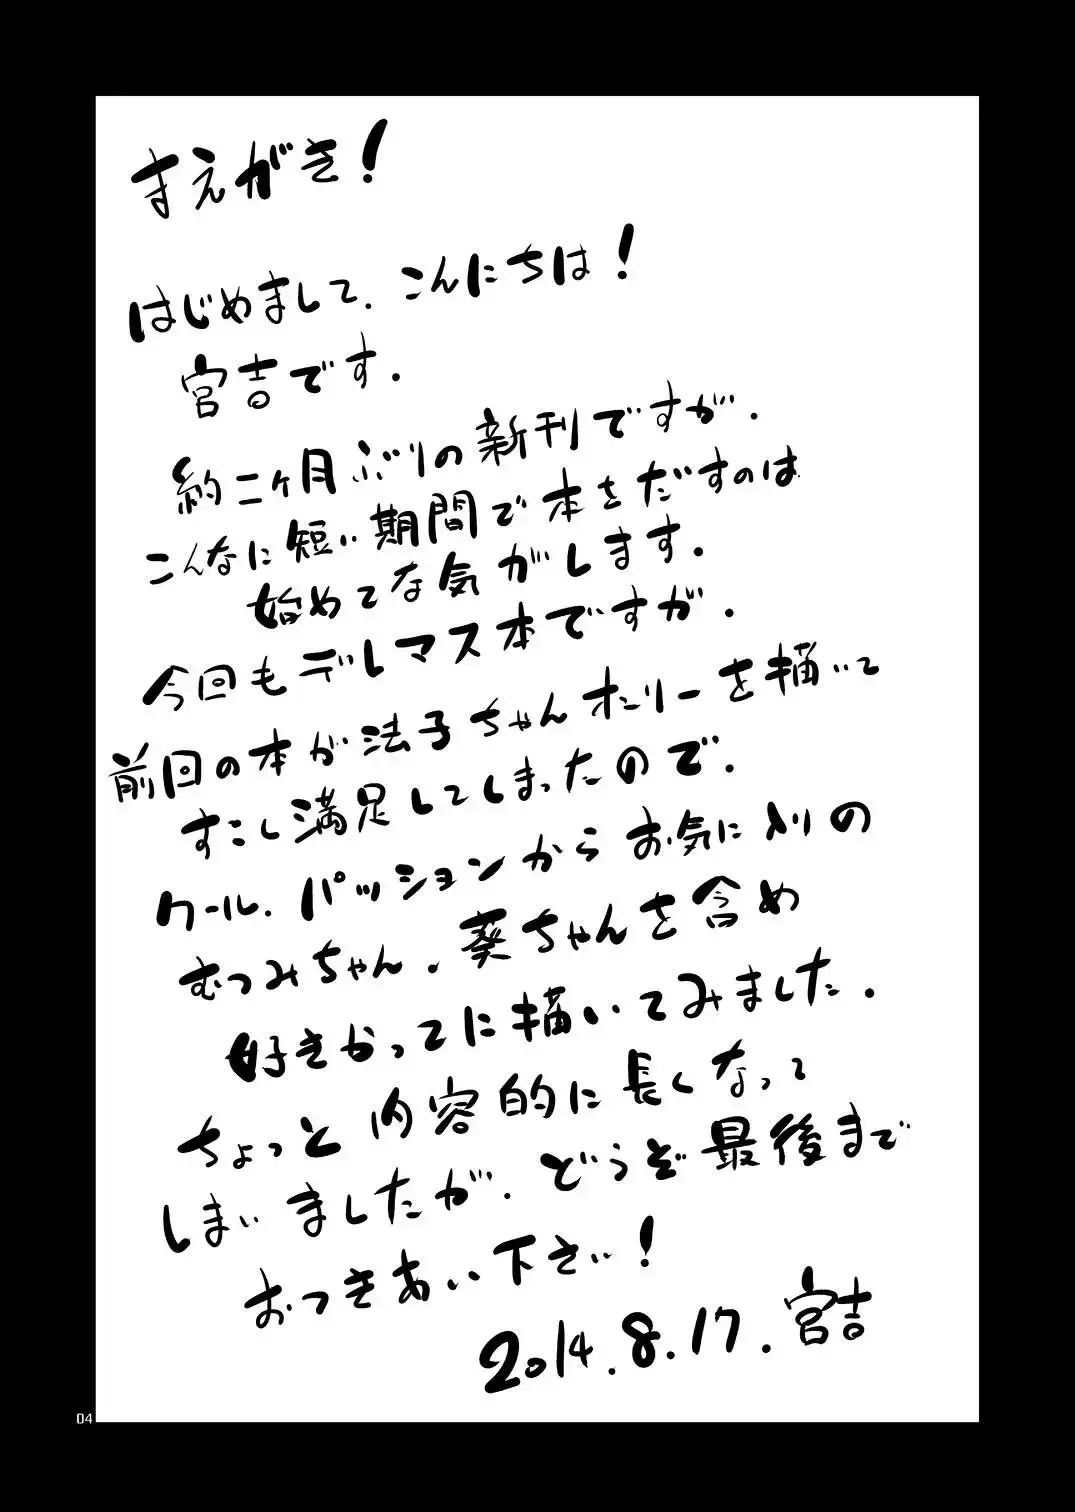 まえがき!
はじめまして.こんにちは!
宮吉です.
約二ヶ月ぶりの新刊ですが.
こんなに短い期間で本をだすのは
始めてな気がします.
今回もデレマス本ですが.
前回の本が法子ちゃんオンリーを描いて
すこし満足してしまったので.
クール.パッションからお気に入りの
むつみちゃん.葵ちゃんを含め
好きかってに描いてみました.
ちょっと内容的に長くなって
しまいましたが.どうぞ最後まで
おつきあい下さい!
2014.8.17.宮吉
04